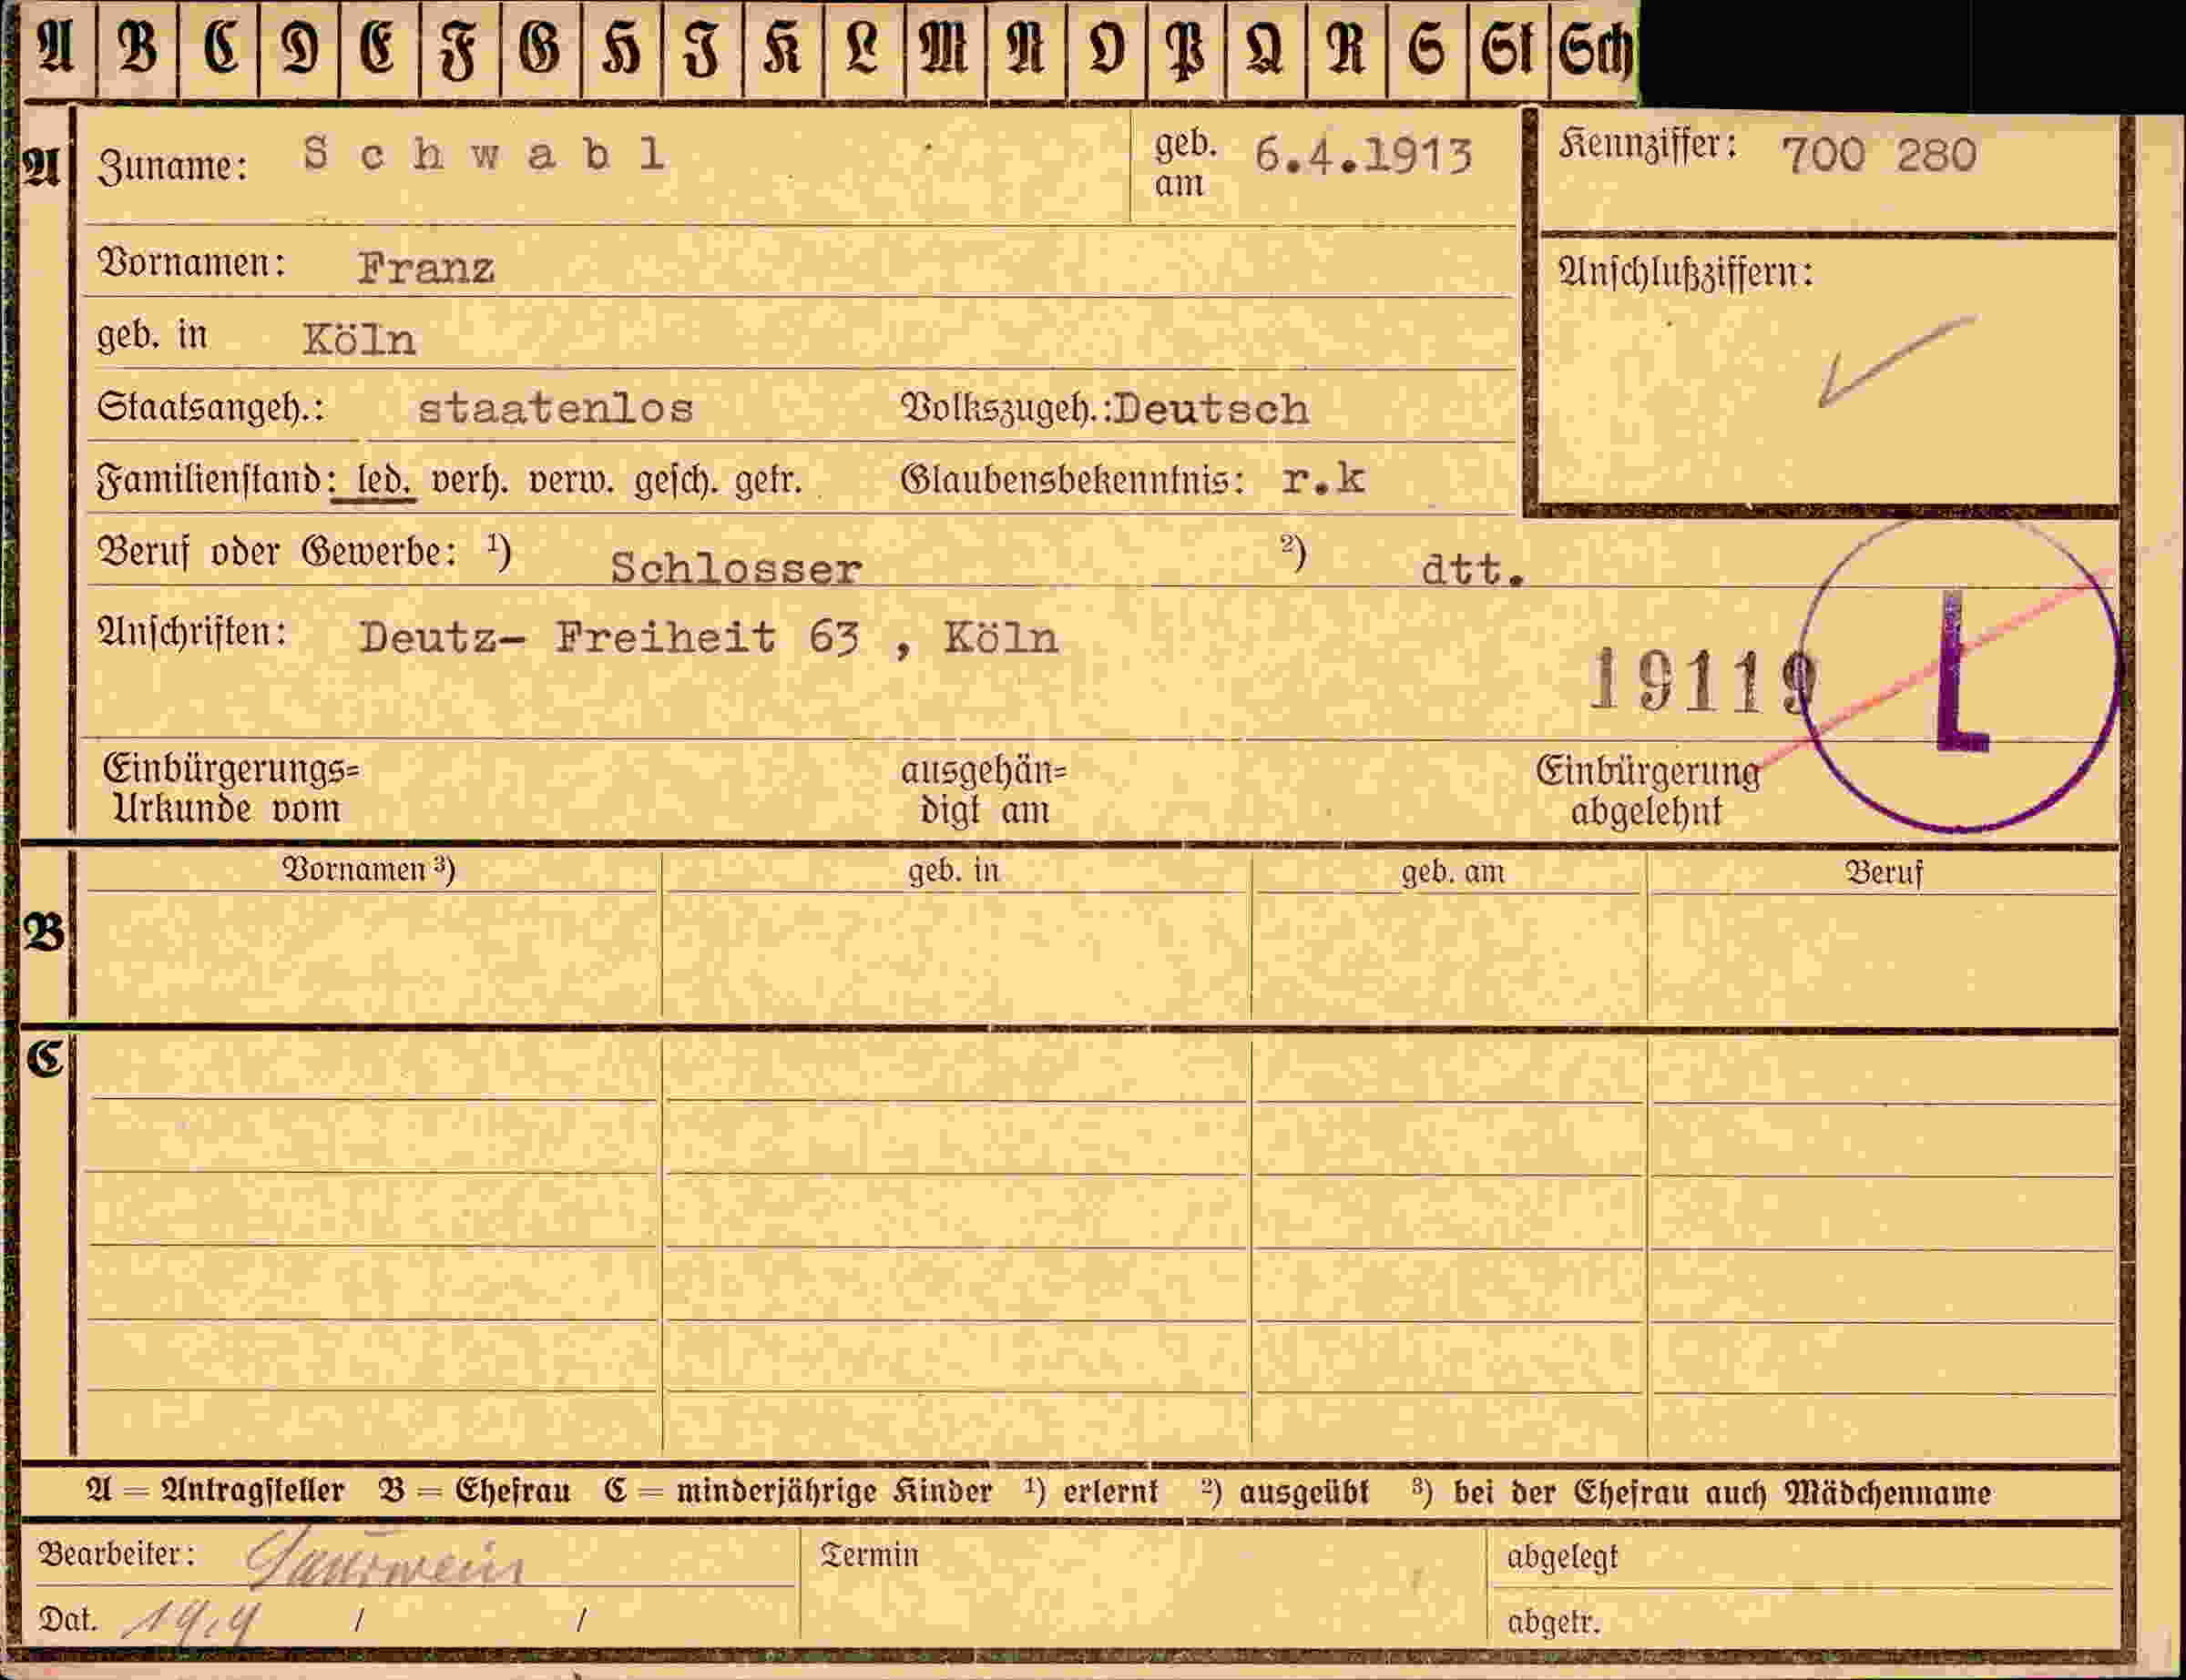 A B C D E F G H I K L M N O P Q R S St Sch
A Zuname: Schwabl geb. am 6.4.1913 Kennziffer: 700 280
Vornamen: Franz Anschlußziffern:
geb. in Köln
Staatsangeh.: staatenlos Volkszugeh.: Deutsch
Familienstand: led. verh. verw. gesch. getr. Glaubensbekenntnis: r.k
Beruf oder Gewerbe: ¹) Schlosser ²) dtt.
Anschriften: Deutz- Freiheit 63 , Köln
19119 L
Einbürgerungs= ausgehän= Einbürgerung
Urkunde vom digt am abgelehnt
Vornamen ³) geb. in geb. am Beruf
B
C
A = Antragsteller B = Ehefrau C = minderjährige Kinder ¹) erlernt ²) ausgeübt ³) bei der Ehefrau auch Mädchenname
Bearbeiter: Saurwein Termin abgelegt
Dat. / / abgetr.